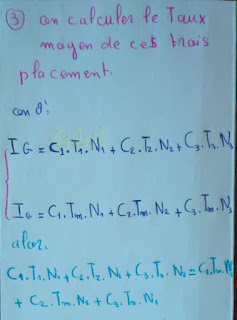 ③ on calculer le Taux
moyen de ces trois
placement.
on a:
IG = C₁.T₁.N₁ + C₂.T₂.N₂ + C₃.T₃.N₃
IG = C₁.Tm.N₁ + C₂.Tm.N₂ + C₃.Tm.N₃
alor:
C₁.T₁.N₁ + C₂.T₂.N₂ + C₃.T₃.N₃ = C₁.Tm.N₁
+ C₂.Tm.N₂ + C₃.Tm.N₃